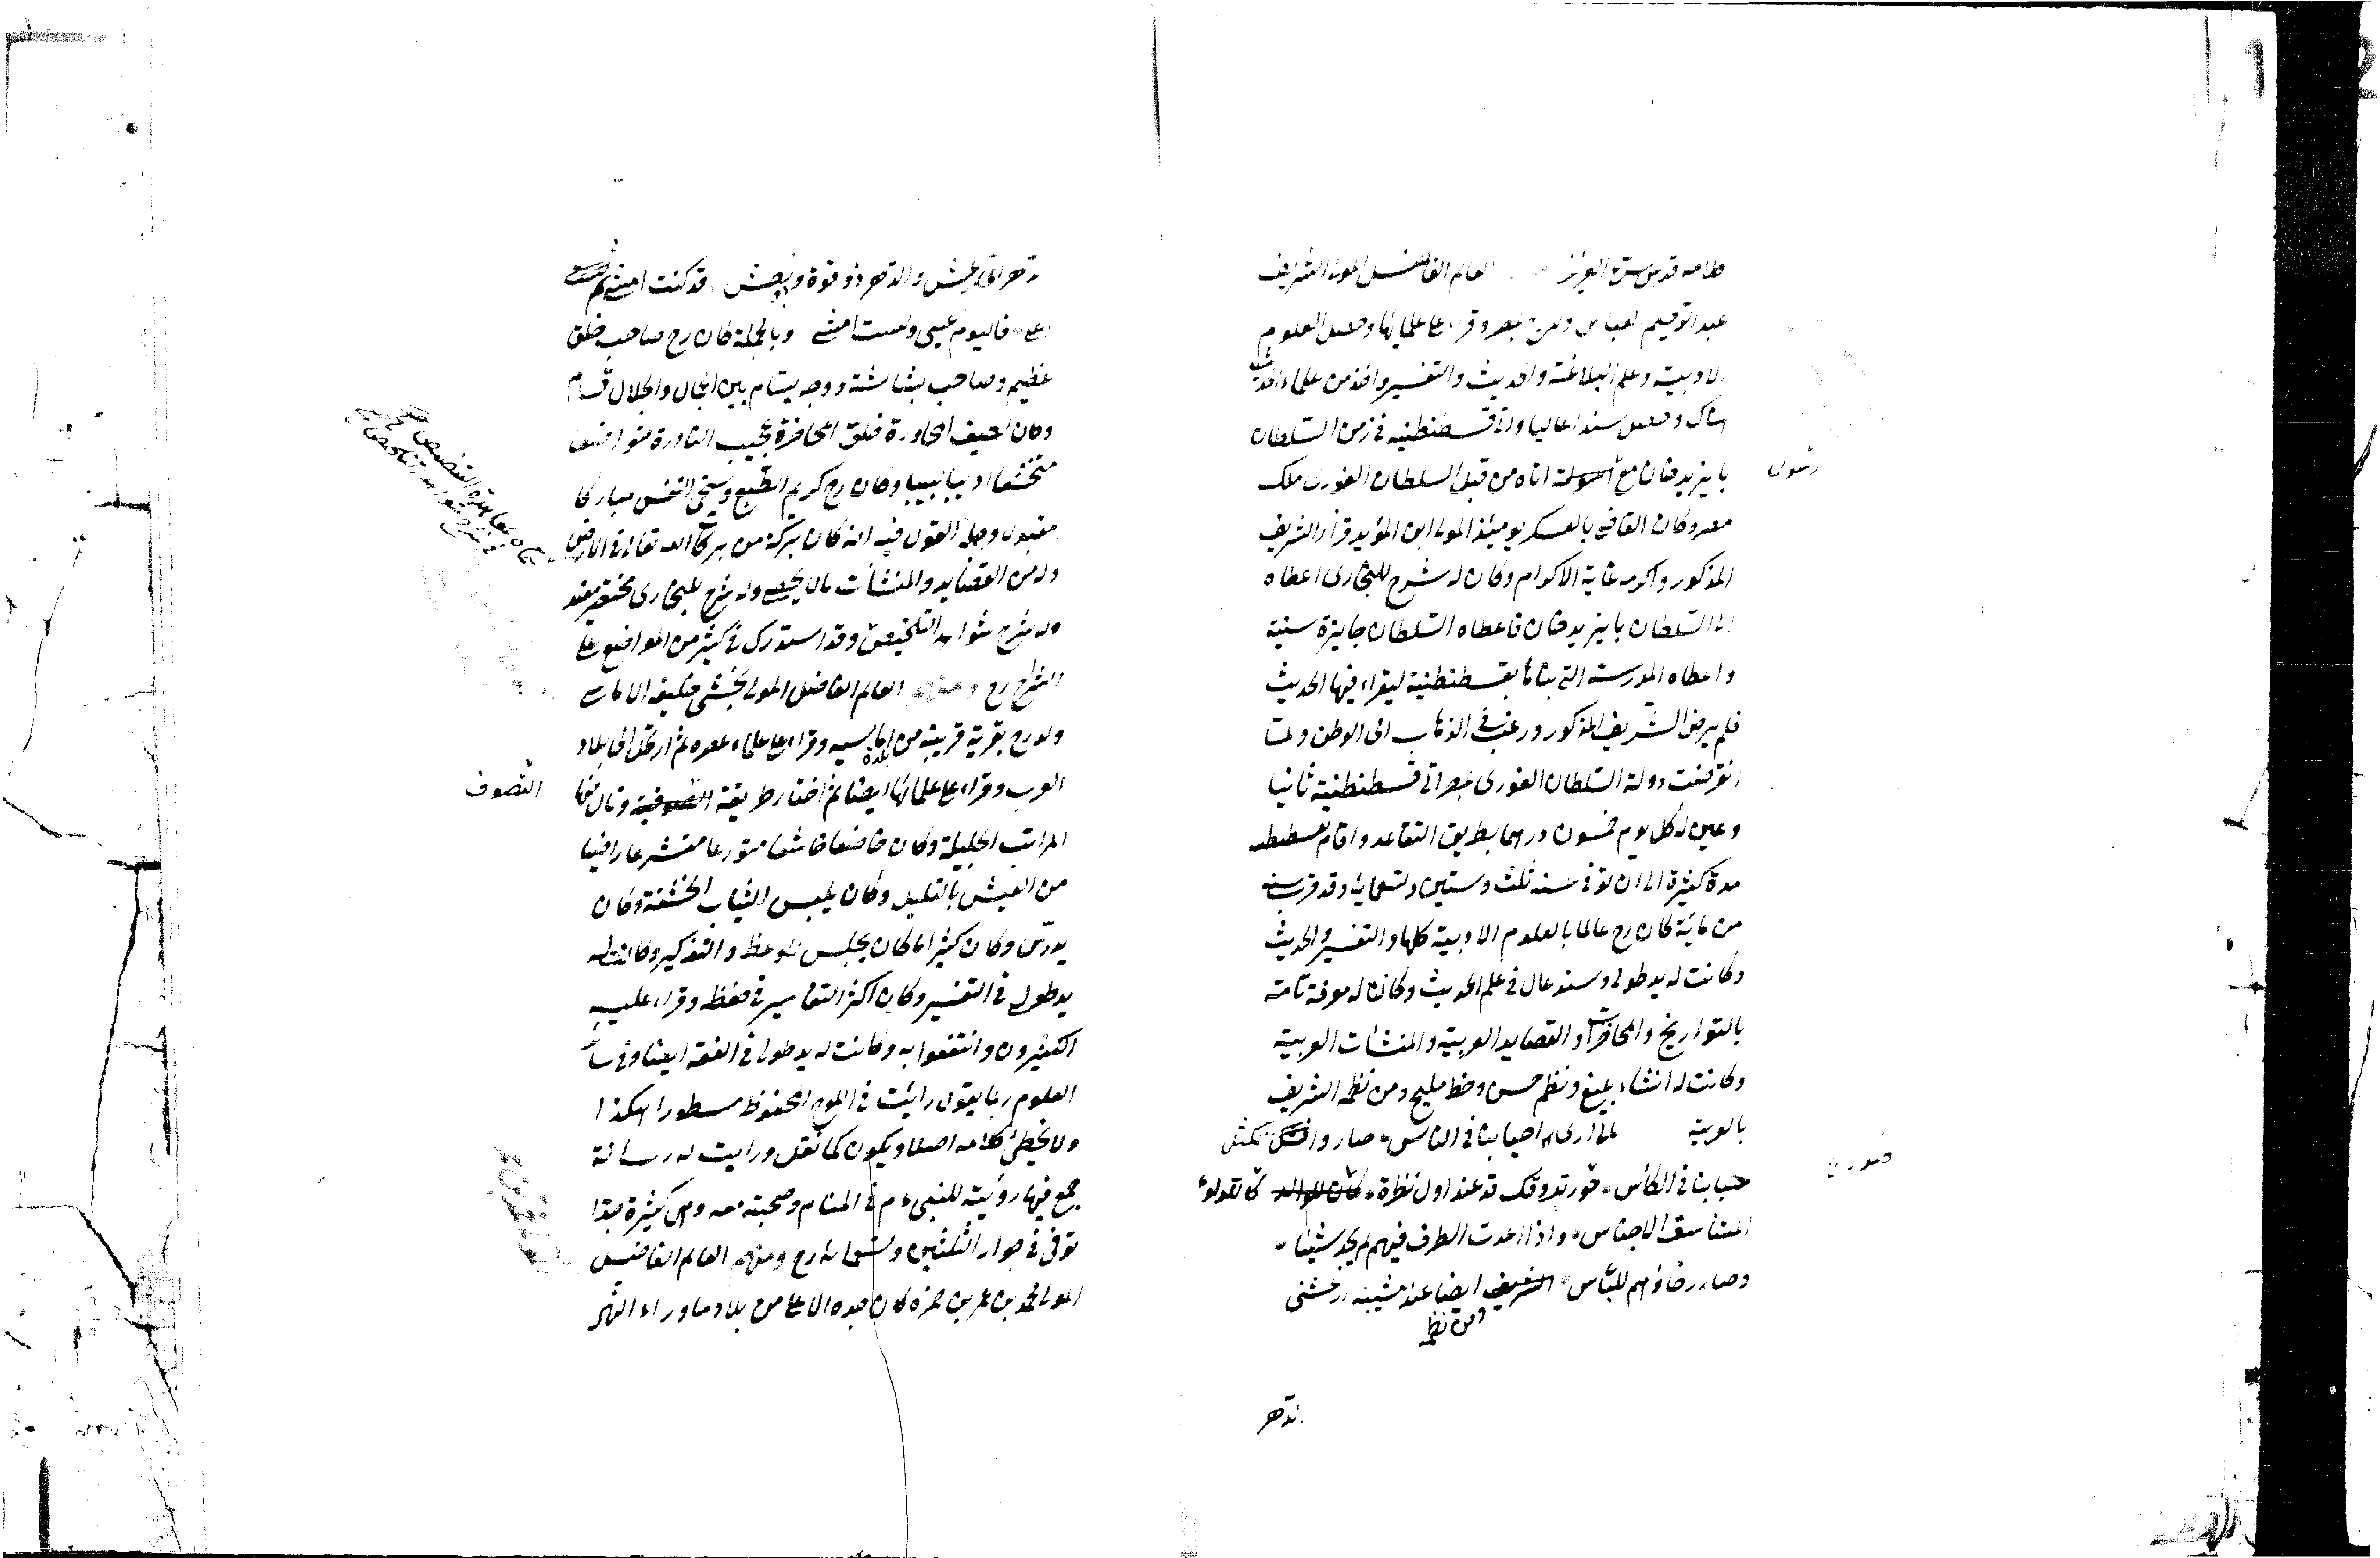 طامه قدس سره العزيز العالم الفاضل المولى الشريف
عبد الرحيم العباسى ولد بمصر وقراء على علمائها وحصل العلوم
الادبية وعلم البلاغة والحديث والتفسير واخذ من علماء الحديث
هناك وحصل سندا عاليا واتى قسطنطنيه فى زمن السلطان
بايزيد خان مع رسول اتاه من قبل السلطان الغورى ملك
مصر وكان القاضى بالعسكر يومئذ المولى ابن المؤيد
المذكور واكرمه غاية الاكرام وكان له شرح للبخارى اعطاه
الى السلطان بايزيد خان فاعطاه السلطان جايزة سنية
واعطاه المدرسة التى بناها بقسطنطنية ليقراء فيها الحديث
فلم يرض الشريف المذكور ورغب فى الذهاب الى الوطن ولما
انقرضت دولة السلطان الغورى بمصر اتى قسطنطنية ثانيا
وعين له كل يوم خمسون درهما بطريق التقاعد واقام بقسطنطنيه
مدة كثيرة الى ان توفى سنه ثلث وستين وتسعمايه وقد قرب سنه
من ماية كان رح عالما بالعلوم الادبية كلها والتفسير والحديث
وكانت له يد طولى وسند عال فى علم الحديث وكان له معرفة تامة
بالتواريخ والمحاضرات والقصايد العربية والمنشات العربية
وكانت له انشاء بليغ ونظم حسن وخط مليح ومن نظم الشريف
بالعربية مالى ارى احبابنا فى الناس صاروا كمثل
حبابنا فى الكأس صور تروقك قد عند اول نظرة كاللؤلؤ
المتناسق الاجناس واذا اعدت الطرف فيهم لم يجد شيئا
وصار رجاؤهم للياس ومن نظم الشريف ايضا عند مشيبه ارعشنى
الدهر
الدهر اى رعش والدهر ذو قوة وبطش قد كنت امشى ولست
اعيى فاليوم اعيى ولست امشى وبالجملة كان رح صاحب خلق
عظيم وصاحب بشاشة ووجه بسام بين الجمال والجلال قسام
وكان لطيف المحاورة المحاضرة عجيب النادرة متواضعا
متخشعا اديبا لبيبا وكان رح كريم الطبع وسخى النفس مباركا
مقبولا وجملة القول فيه انه كان بركة من بركات الله تعالى فى الارض
وله من القصايد والمنشأت ما لا يحصى وله شرح للبخارى مختصر مفيد
وله شرح شواهد التلخيص وقد استدرك فى كثير من المواضع على
الشراح رح ومنهم العالم الفاضل المولى بخشى خليفه الاماسى
ولد رح بقرية قريبة من بلدة اماسيه وقراء على علماء عصره ثم ارتحل الى بلاد
العرب وقراء على علمائها ايضا ثم اختار طريقة التصوف ونال منها
المراتب الجليلة وكان خاضعا خاشعا متورعا متشرعا راضيا
من العيش بالقليل وكان يلبس الثياب الخشنة وكان
يدرس وكان كثيرا ما كان يجلس للوعظ والتذكير وكانت له
يد طولى فى التفسير وكان اكثر التفاسير فى حفظه وقراء عليه
الكثيرون وانتفعوا به وكانت له يد طولى فى الفقه ايضا وفى سائر
العلوم ربما يقول رايت فى اللوح المحفوظ مسطورا هكذا
ولا يخطئ كلامه اصلا ويكون كما نقل ورايت له رسالة
جمع فيها رؤيته للنبى ءم فى المنام وصحبته معه وهى كثيرة جدا
توفى فى جوار الثلثين وتسعمايه رح ومنهم العالم الفاضل
المولى محمد بن عمر بن حمزه كان جده الاعلى من بلاد ماوراء النهر